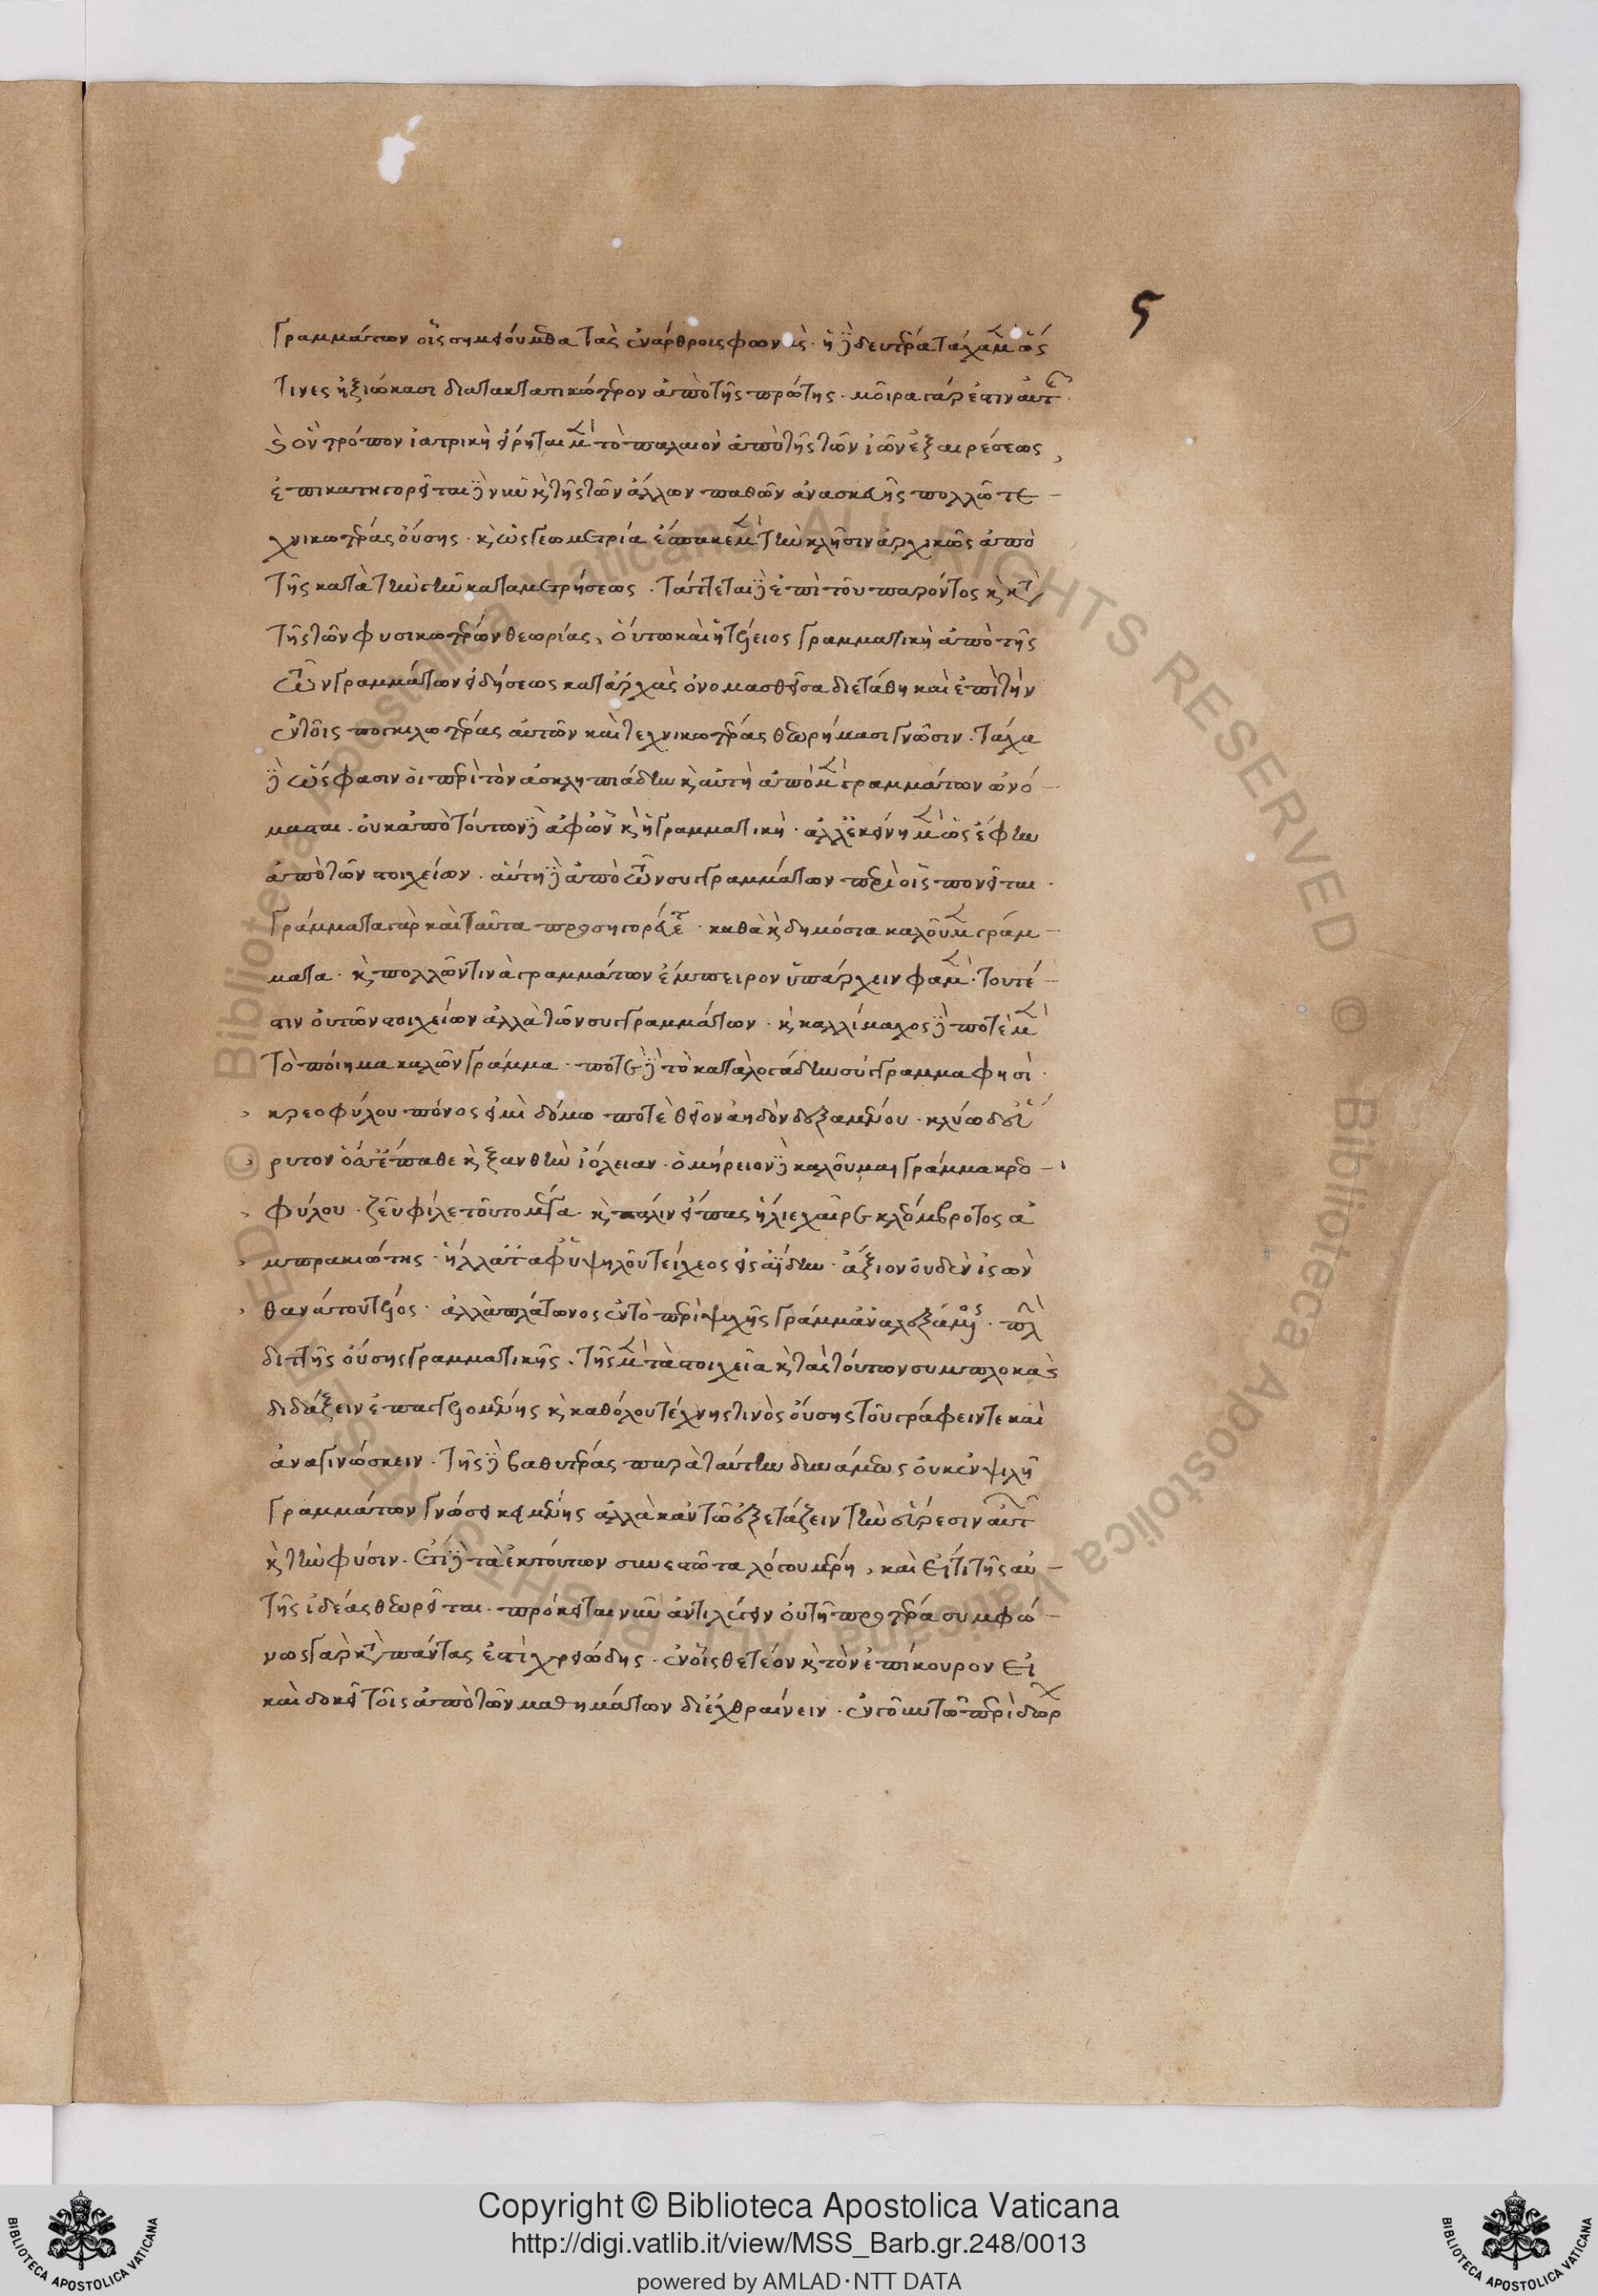 ς
γραμμάτων οἷς σημειούμεθα τὰς ἐνάρθροις φωνὰς· ἡ δὲ δευτέρα τάχα μὲν ὥς
τινες ἠξιώκασι διατακτατικώτερον ἀπὸ τῆς πρώτης· μοῖρα γάρ ἐστιν αὐτῆς·
καὶ ὃν τρόπον ἰατρικὴ εἴρηται μὲν τὸ παλαιὸν ἀπὸ τῆς τῶν ἰῶν ἐξαιρέσεως,
ἐπικατηγορεῖται δὲ νῦν καὶ τῆς τῶν ἄλλων παθῶν ἀνασκευῆς πολλῷ τε-
χνικωτέρας οὔσης· καὶ ὡς γεωμετρία ἔσπακε μὲν τὴν κλῆσιν ἀρχικῶς ἀπὸ
τῆς κατὰ τὴν γῆν καταμετρήσεως· τάττεται δὲ ἐπὶ τοῦ παρόντος καὶ κατὰ
τῆς τῶν φυσικωτέρων θεωρίας, οὕτω καὶ ἡ τέλειος γραμματικὴ ἀπὸ τῆς
τῶν γραμμάτων εἰδήσεως κατ' ἀρχὰς ὀνομασθεῖσα διετάθη καὶ ἐπὶ τὴν
ἐν τοῖς ποικιλωτέρας αὐτῶν καὶ τεχνικωτέρας θεωρήμασι γνῶσιν· τάχα
δὲ ὥς φασιν οἱ περὶ τὸν ἀσκληπιάδην καὶ αὐτὴ ἀπὸ μὲν γραμμάτων ὠνό-
μασται· οὐκ ἀπὸ τούτων δὲ ἀφ' ὧν καὶ ἡ γραμματικὴ· ἀλλ' ἐκείνη μὲν ὡς ἔφην
ἀπὸ τῶν στοιχείων· αὕτη δὲ ἀπὸ τῶν συγγραμμάτων περὶ οἷς πονεῖται·
γράμματα γὰρ καὶ ταῦτα προσηγορεύετο· καθὰ καὶ δημόσια καλοῦμεν γράμ-
ματα· καὶ πολλῶν τινὰ γραμμάτων ἔμπειρον ὑπάρχειν φαμὲν· τουτέ-
στιν οὐ τῶν στοιχείων ἀλλὰ τῶν συγγραμμάτων· καὶ καλλίμαχος δὲ ποτὲ μὲν
τὸ ποίημα καλῶν γράμμα· ποτὲ δὲ τὸ καταλογάδην σύγγραμμα φησὶ·
κρεοφύλου πόνος εἰμὶ δόμῳ ποτὲ θεῖον ἀηδὸν δεξαμένου· κλύω δ' εὔ
ρυτον ὅσ' ἔπαθε καὶ ξανθὴν ἰόλειαν· ὁμήρειον δὲ καλοῦμαι γράμμα κρεο-
φύλου· ζεῦ φίλε τοῦτο μέγα· καὶ πάλιν εἴπας ἥλιε χαῖρε κλεόμβροτος ἀ
μπρακιώτης· ἥλλατ' ἀφ' ὑψηλοῦ τείχεος εἰς ἀΐδην· ἄξιον οὐδὲν ἰδὼν
θανάτου τέλος· ἀλλὰ πλάτωνος ἓν τὸ περὶ ψυχῆς γράμμ' ἀναλεξάμενος· πλὴν
διττῆς οὔσης γραμματικῆς· τῆς μὲν τὰ στοιχεῖα καὶ τὰς τούτων συμπλοκὰς
διδάξειν ἐπαγγελομένης καὶ καθόλου τέχνης τινὸς οὔσης τοῦ γράφειν τε καὶ
ἀναγινώσκειν· τῆς δὲ βαθυτέρας παρὰ ταύτην δυνάμεως οὐκ ἐν ψιλῇ
γραμμάτων γνώσει κειμένης ἀλλὰ κἀν τῷ ἐξετάζειν τὴν εὕρεσιν αὐτῶν
καὶ τὴν φύσιν· ἔτι δὲ τὰ ἐκ τούτων συνεστῶτα λόγου μέρη, καὶ εἴ τι τῆς αὐ-
τῆς ἰδέας θεωρεῖται· πρόκειται νῦν ἀντιλέγειν οὐ τῇ προτέρᾳ συμφώ-
νως γὰρ κατὰ πάντας ἐστὶ χρειώδης· ἐν οἷς θετέον καὶ τὸν ἐπίκουρον εἰ
καὶ δοκεῖ τοῖς ἀπὸ τῶν μαθημάτων διεχθραίνειν· ἐν γοῦν τῷ περὶ δώρων
Copyright © Biblioteca Apostolica Vaticana
http://digi.vatlib.it/view/MSS_Barb.gr.248/0013
powered by AMLAD·NTT DATA